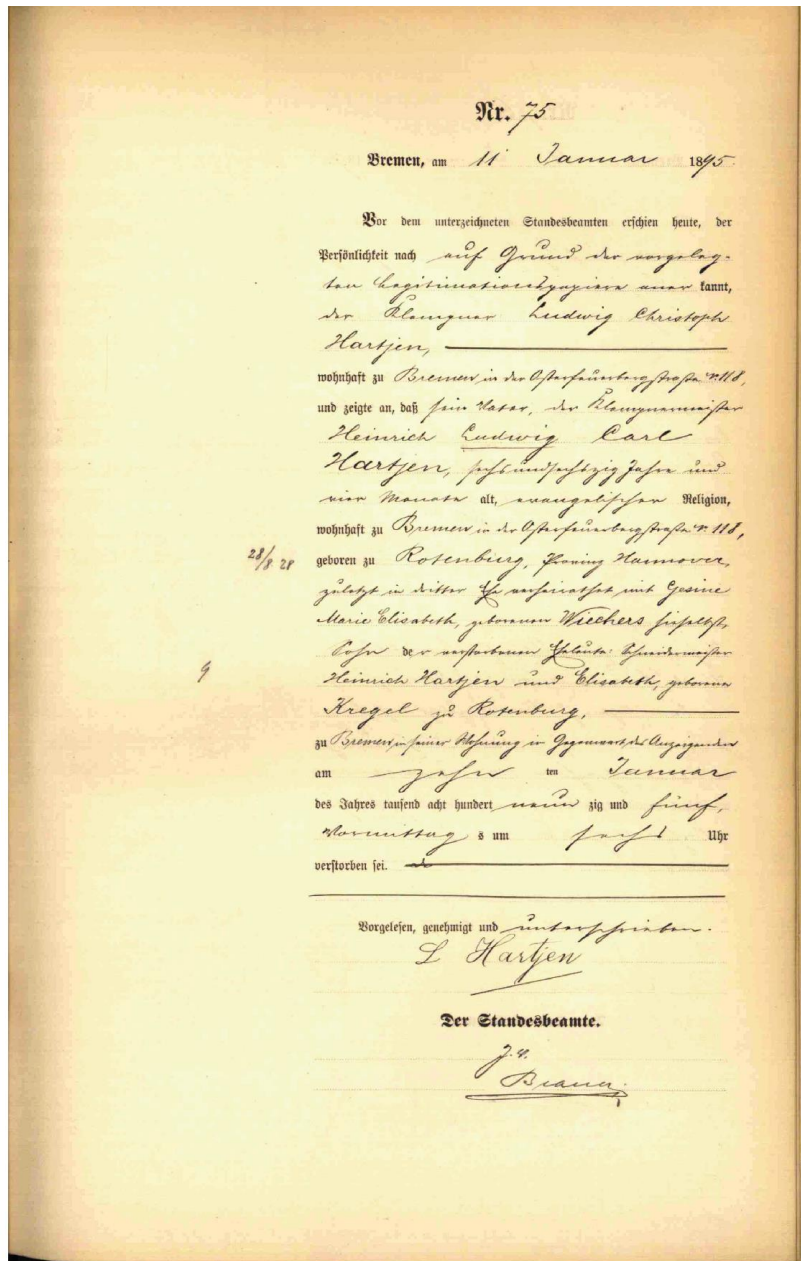 Nr. 75
Bremen, am 11 Januar 1895.
Vor dem unterzeichneten Standesbeamten erschien heute, der
Persönlichkeit nach auf Grund der vorgeleg-
ten Legitimationspapiere aner kannt,
der Klempner Ludwig Christoph
Hartjen,
wohnhaft zu Bremen in der Osterfeuerbergstraße Nr. 118,
und zeigte an, daß sein Vater, der Klempnermeister
Heinrich Ludwig Carl
Hartjen, sechsundsechzig Jahre und
vier Monate alt, evangelischer Religion,
wohnhaft zu Bremen in der Osterfeuerbergstraße Nr. 118,
28/8 28
geboren zu Rotenburg, Provinz Hannover,
zuletzt in dritter Ehe verheirathet mit Gesine
Marie Elisabeth, geborenen Wiechers hieselbst,
Sohn der verstorbenen Eheleute: Schneidermeister
9
Heinrich Hartjen und Elisabeth, geborene
Kregel zu Rotenburg,
zu Bremen, in seiner Wohnung in Gegenwart des Anzeigenden
am zehn ten Januar
des Jahres tausend acht hundert neun zig und fünf,
Vormittag s um sechs Uhr
verstorben sei.
Vorgelesen, genehmigt und unterschrieben.
L Hartjen
Der Standesbeamte.
J. V.